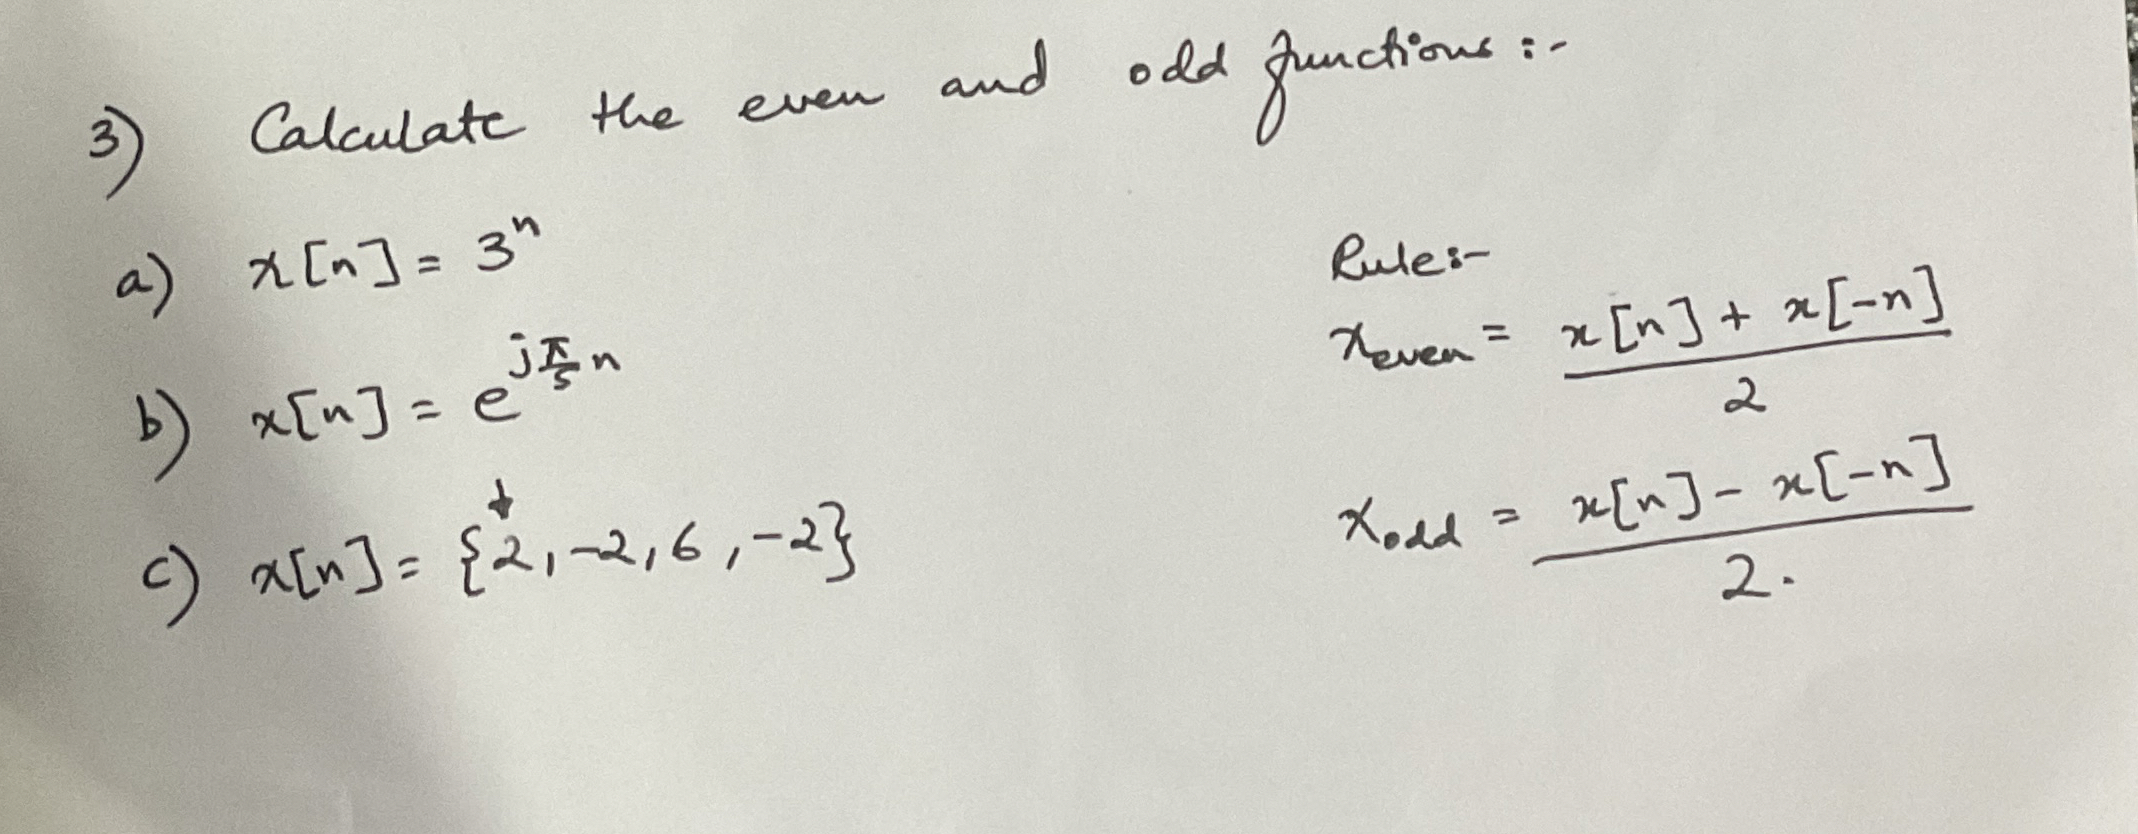 3) Calculate the even and odd functions :-
a) x[n] = 3ⁿ
b) x[n] = e^(j π/5 n)
c) x[n] = {2, -2, 6, -2}
↓
Rule:-
x_even = (x[n] + x[-n]) / 2
x_odd = (x[n] - x[-n]) / 2.